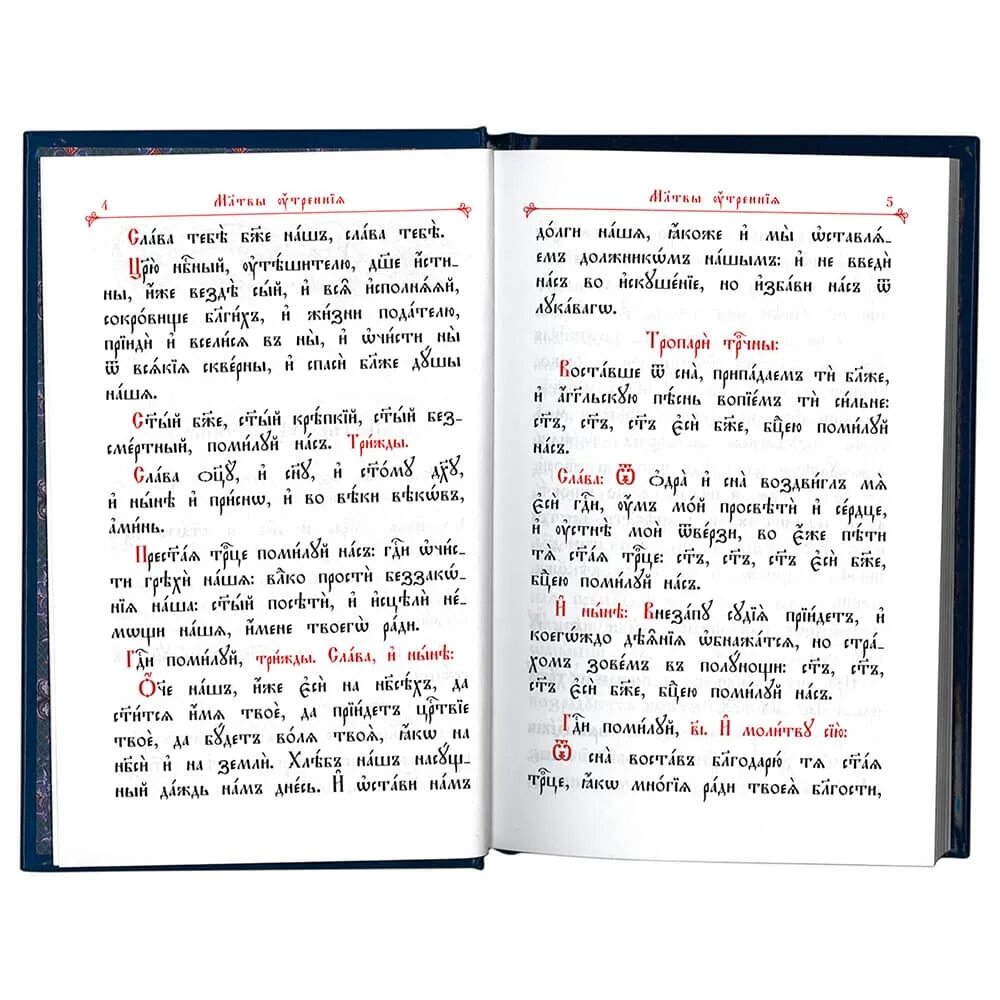 4 Мл҃твы ᲂу҆́треннїѧ
Сла́ва тебѣ̀ бж҃е на́шъ, сла́ва тебѣ̀.
Цр҃ю̀ нбⷭ҇ный, ᲂу҆тѣ́шителю, дш҃е и҆́сти-
ны, и҆́же вездѣ̀ сы́й, и҆ всѧ̑ и҆сполнѧ́ѧй,
сокро́вище бл҃ги́хъ, и҆ жи́зни пода́телю,
прїидѝ и҆ всели́сѧ въ ны̀, и҆ ѡ҆чи́сти ны̀
ѿ всѧ́кїѧ скве́рны, и҆ сп҃сѝ бл҃же дꙋ́шы
на́шѧ.
Ст҃ы́й бж҃е, ст҃ы́й крѣ́пкїй, ст҃ы́й без-
сме́ртный, поми́лꙋй на́съ. Три́жды.
Сла́ва ѻ҆ц҃ꙋ̀, и҆ сн҃ꙋ, и҆ ст҃о́мꙋ дх҃ꙋ,
и҆ ны́нѣ и҆ при́снѡ, и҆ во вѣ́ки вѣкѡ́въ,
а҆ми́нь.
Прест҃а́ѧ трⷪ҇це поми́лꙋй на́съ: гдⷭ҇и ѡ҆чи́с-
ти грѣхѝ на́шѧ: влⷣко простѝ беззакѡ́-
нїѧ на́ша: ст҃ы́й посѣтѝ, и҆ и҆сцѣлѝ не́-
мѡщи на́шѧ, и҆́мене твоегѡ̀ ра́ди.
Гдⷭ҇и поми́лꙋй, три́жды. Сла́ва, и҆ ны́нѣ:
Ѻ҆́че на́шъ, и҆́же є҆сѝ на нб҃сѣ́хъ, да
ст҃и́тсѧ и҆́мѧ твоѐ, да прїи́детъ црⷭ҇твїе
твоѐ, да бꙋ́детъ во́лѧ твоѧ̀, ꙗ҆́кѡ на
нб҃сѝ и҆ на землѝ. Хлѣ́бъ на́шъ насꙋ́щ-
ный да́ждь на́мъ дне́сь. И҆ ѡ҆ста́ви на́мъ
Мл҃твы ᲂу҆́треннїѧ 5
до́лги на́шѧ, ꙗ҆́коже и҆ мы̀ ѡ҆ставлѧ́-
емъ должникѡ́мъ на́шымъ: и҆ не введѝ
на́съ во и҆скꙋше́нїе, но и҆зба́ви на́съ ѿ
лꙋка́вагѡ.
Тропарѝ трⷪ҇чны:
Воста́вше ѿ сна̀, припа́даемъ тѝ бл҃же,
и҆ а҆́гг҃льскꙋю пѣ́снь вопїе́мъ тѝ си́льне:
ст҃ъ, ст҃ъ, ст҃ъ є҆сѝ бж҃е, бцⷣею поми́лꙋй
на́съ.
Сла́ва: Ѿ ѻ҆дра̀ и҆ сна̀ воздви́глъ мѧ̀
є҆сѝ гдⷭ҇и, ᲂу҆́мъ мо́й просвѣтѝ и҆ се́рдце,
и҆ ᲂу҆стнѣ̀ моѝ ѿве́рзи, во є҆́же пѣ́ти
тѧ̀ ст҃а́ѧ трⷪ҇це: ст҃ъ, ст҃ъ, ст҃ъ є҆сѝ бж҃е,
бцⷣею поми́лꙋй на́съ.
И҆ ны́нѣ: Внеза́пꙋ сꙋдїѧ̀ прїи́детъ, и҆
коегѡ́ждо дѣѧ̑нїѧ ѡ҆бнажа́тсѧ, но стра́-
хомъ зове́мъ въ полꙋ́нощи: ст҃ъ, ст҃ъ,
ст҃ъ є҆сѝ бж҃е, бцⷣею поми́лꙋй на́съ.
Гдⷭ҇и поми́лꙋй, в҃і. И҆ моли́твꙋ сїю̀:
Ѿ сна̀ воста́въ благодарю́ тѧ ст҃а́ѧ
трⷪ҇це, ꙗ҆́кѡ мно́гїѧ ра́ди твоеѧ̀ бл҃гости,